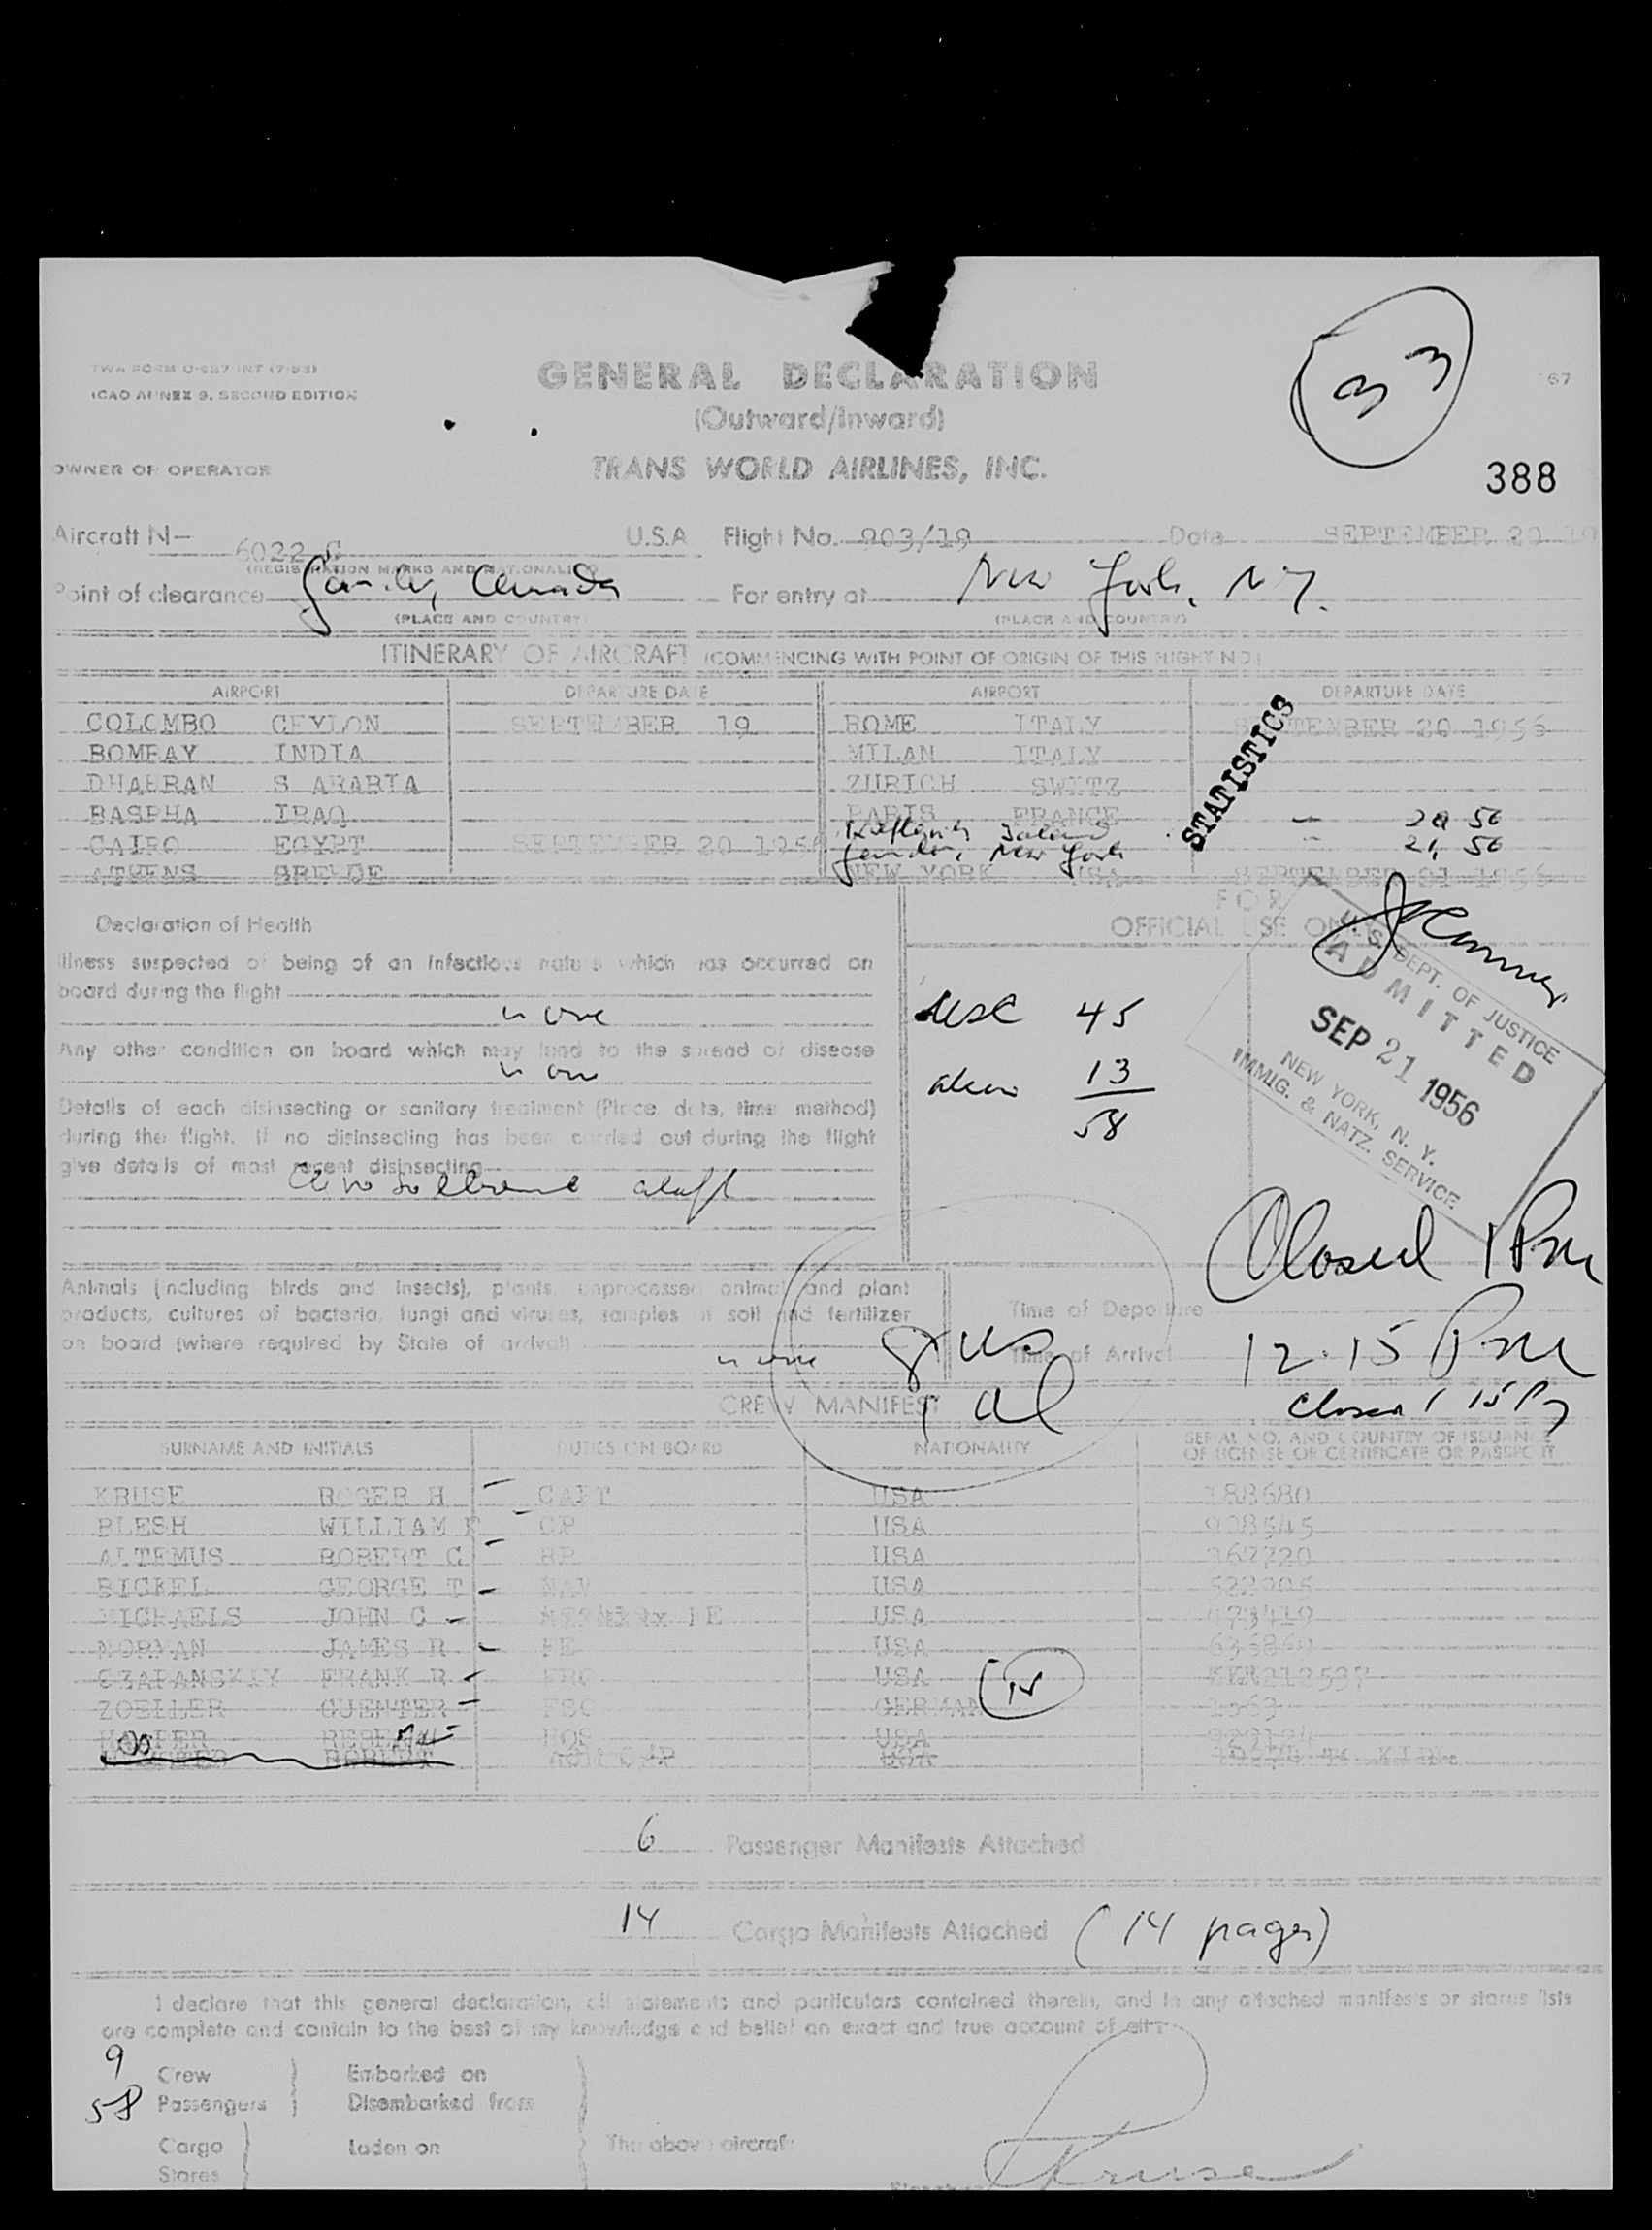 TWA FORM INT (7-53)
ICAO ANNEX 9, SECOND EDITION
GENERAL DECLARATION
(Outward/Inward)
33
67
OWNER OR OPERATOR
TRANS WORLD AIRLINES, INC.
388
Aircraft N- 6022 C U.S.A. Flight No. 903/19 Date SEPTEMBER 20 19
(REGISTRATION MARKS AND NATIONALITY)
Point of clearance Gander, Canada For entry at New York, N.Y.
(PLACE AND COUNTRY) (PLACE AND COUNTRY)
ITINERARY OF AIRCRAFT (COMMENCING WITH POINT OF ORIGIN OF THIS FLIGHT NO)
AIRPORT DEPARTURE DATE AIRPORT DEPARTURE DATE
COLOMBO CEYLON SEPTEMBER 19 ROME ITALY SEPTEMBER 20 1956
BOMBAY INDIA MILAN ITALY
DHAHRAN S ARABIA ZURICH SWITZ
BASRHA IRAQ PARIS FRANCE
Keflavik Iceland - 20 56
CAIRO EGYPT SEPTEMBER 20 1956 Gander, New York - 21, 56
ATHENS GREECE NEW YORK USA SEPTEMBER 21 1956
STATISTICS
Declaration of Health
FOR
OFFICIAL USE ONLY
Illness suspected of being of an infectious nature which has occurred on
board during the flight
none
Any other condition on board which may lead to the spread of disease
none
Details of each disinsecting or sanitary treatment (Place, date, time method)
during the flight. If no disinsecting has been carried out during the flight
give details of most recent disinsecting
USC 45
alien 13
58
U.S. DEPT. OF JUSTICE
ADMITTED
SEP 21 1956
NEW YORK, N. Y.
IMMIG. & NATZ. SERVICE
Closed 1 PM
Animals (including birds and insects), plants, unprocessed animal and plant
products, cultures of bacteria, fungi and viruses, samples of soil and fertilizer
on board (where required by State of arrival)
none
8 US
1 al
Time of Departure
Time of Arrival 12.15 PM
Closed 1 15 P
CREW MANIFEST
SURNAME AND INITIALS DUTIES ON BOARD NATIONALITY SERIAL NO. AND COUNTRY OF ISSUANCE
OF LICENSE OR CERTIFICATE OR PASSPORT
KRUSE ROGER H CAPT USA 188680
BLESH WILLIAM F CP USA 908545
ALTEMUS ROBERT C USA
BICKEL GEORGE T NAV USA
MICHAELS JOHN C IE USA
NORMAN JAMES R FE USA
CZAPANSKIY FRANK R USA
ZOELLER GUENTER FSC GERMAN
HARPER HOS USA
ROBERT USA
6 Passenger Manifests Attached
14 Cargo Manifests Attached (14 pages)
I declare that this general declaration, all statements and particulars contained therein, and in any attached manifests or stores lists
are complete and contain to the best of my knowledge and belief an exact and true account of all
9 Crew Embarked on
58 Passengers Disembarked from
Cargo Laden on The above aircraft
Stores
Kruse